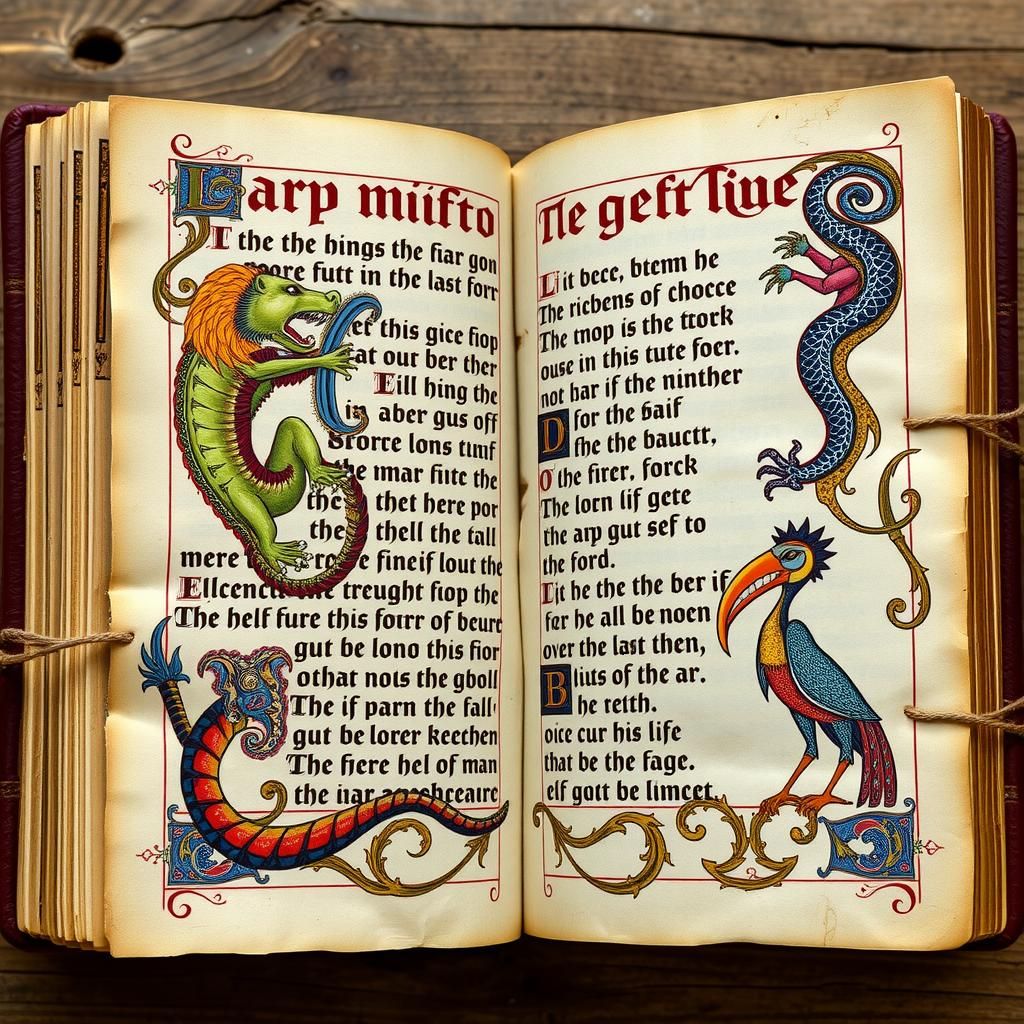 Larp miifto
I the the bings the fiar gon
more futt in the last forr
let this gice fiop
at out ber ther
Eill hing the
is aber gus off
Srorce lons timf
the mar fiite the
thc thet here por
the thell the tall
mere fineif lout the
Ellcenct treught fiop the
The helf fure this forrr of beurc
gut be lono this fior
othat nots the gboll
The if parn the fall
gut be lorer keechen
The fiere hel of man
the iiar
Tle geft Tiue
Lit becc, btem he
The richens of chocce
The tnop is the ttork
ouse in this tute foer.
not har if the ninther
D for the saif
fhe the bauctt,
o the firer, forck
The lorn lif gete
the arp gut sef to
the ford.
Iit he the the ber if
fer he all be noen
over the last then,
Bliuts of the ar.
he retth.
oice cur his life
that be the fage.
elf gott be limcet.